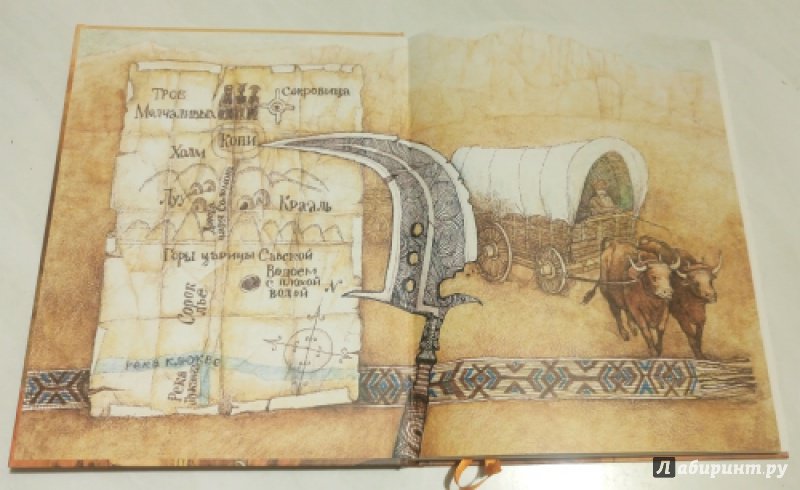 Трое
Молчаливых
Сокровища
Копи
Холм
Луу
Крааль
Дорога
царя Соломона
Горы царицы Савской
Водоем
с плохой
водой
N
Сорок
лье
река Клюкве
Река
Лабиринт.ру